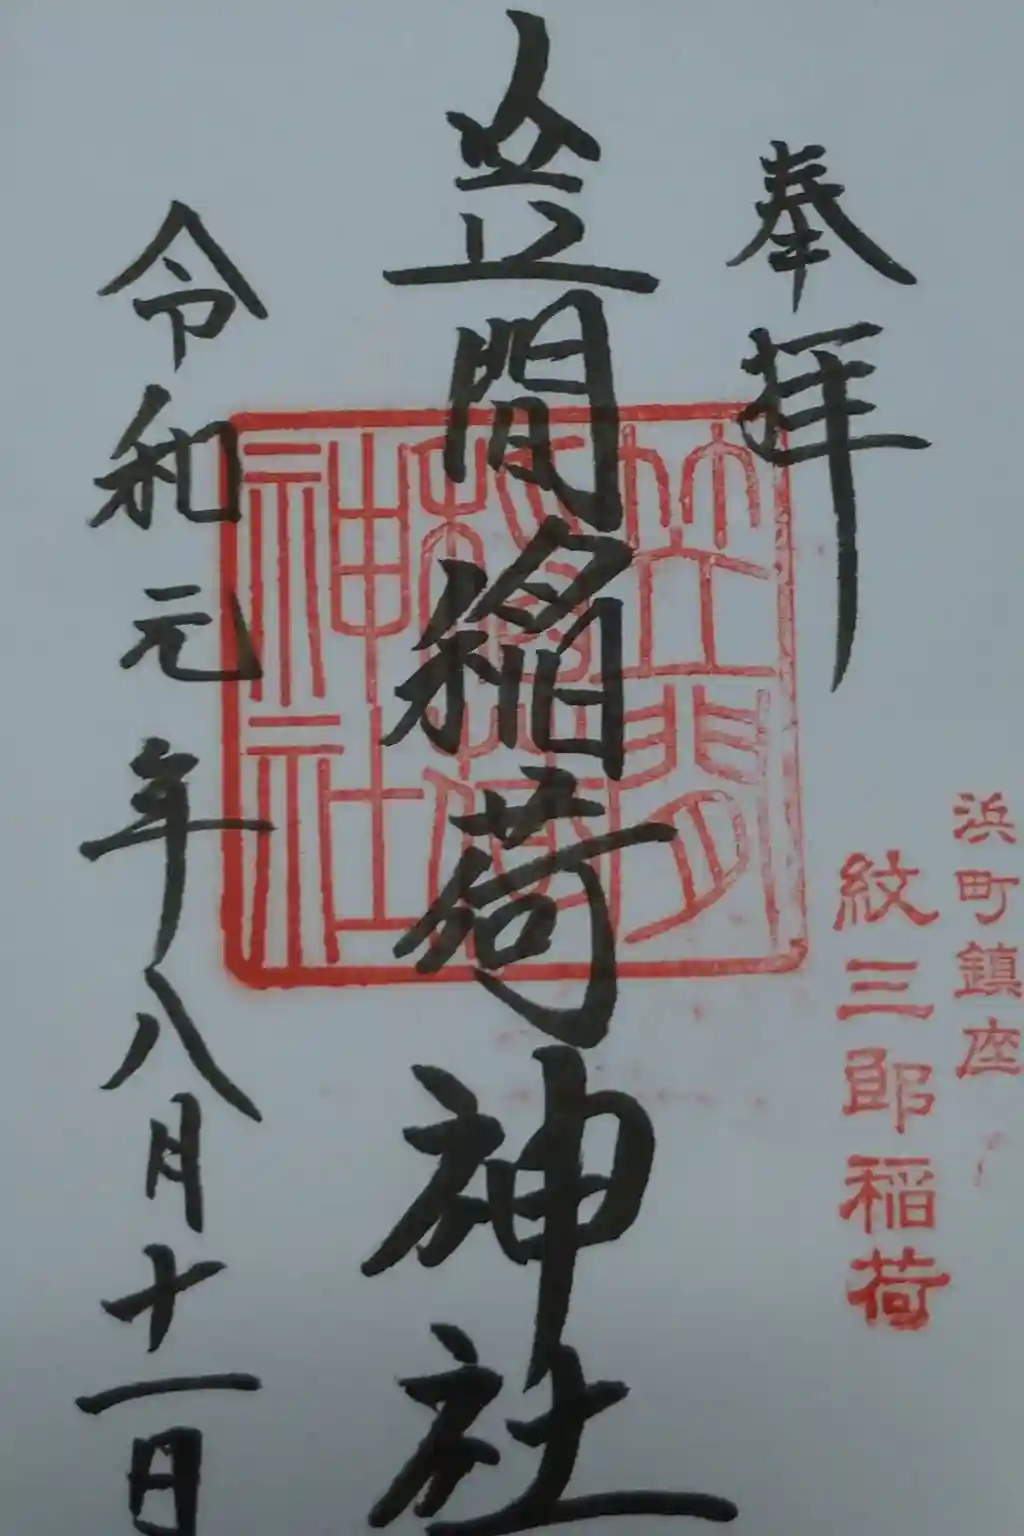 浜町鎮座
紋三郎稲荷
奉拝
笠間稲荷神社
笠間
稲荷
神社
令和元年八月十一日